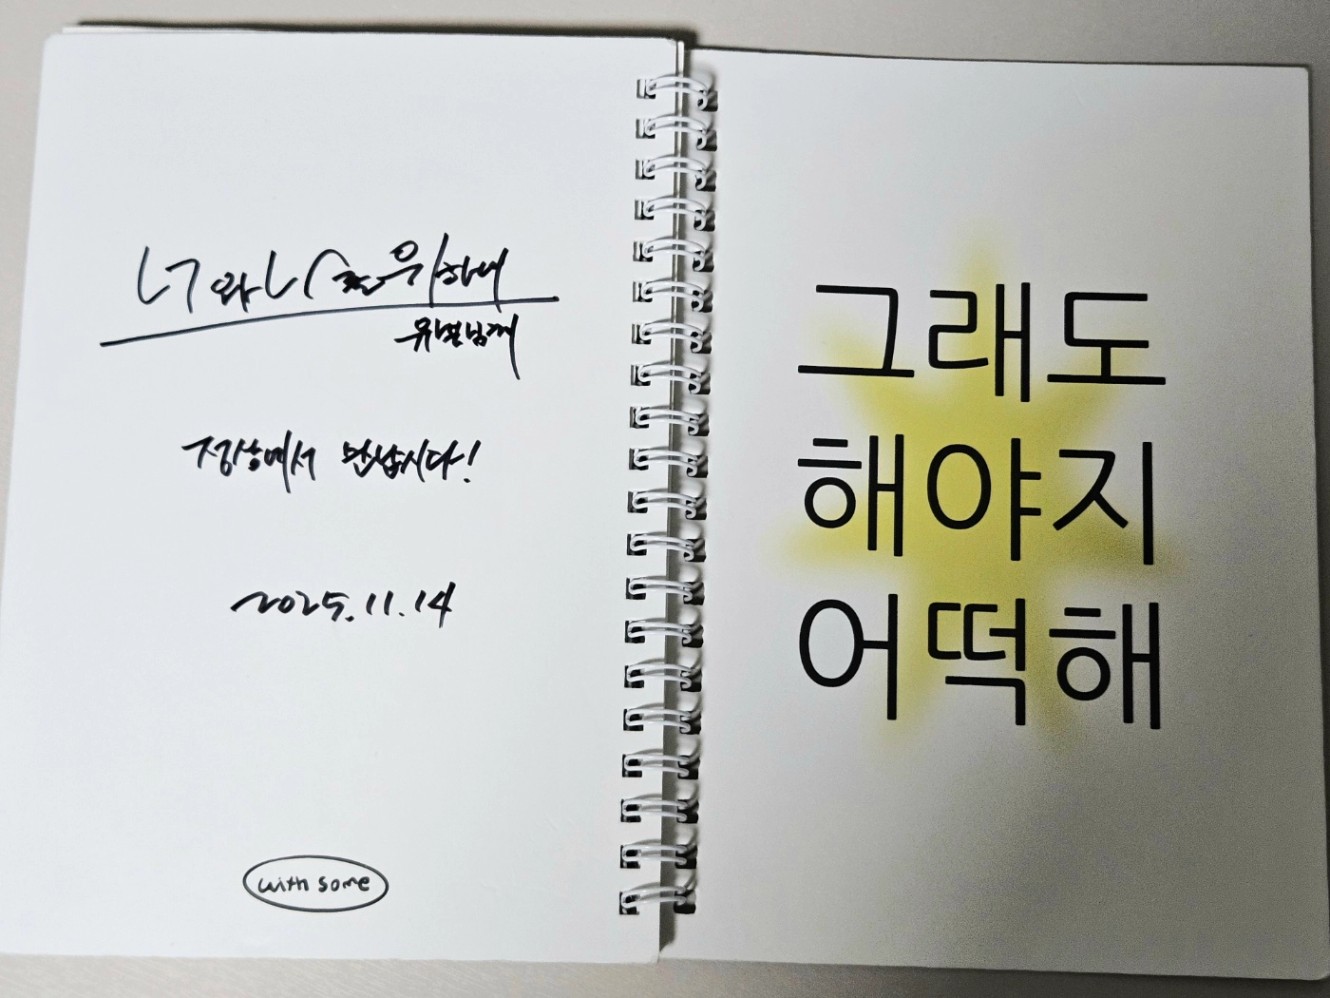 너와 나를 위하여
유별님께
정상에서 만납시다!
2025.11.14
with some
그래도
해야지
어떡해